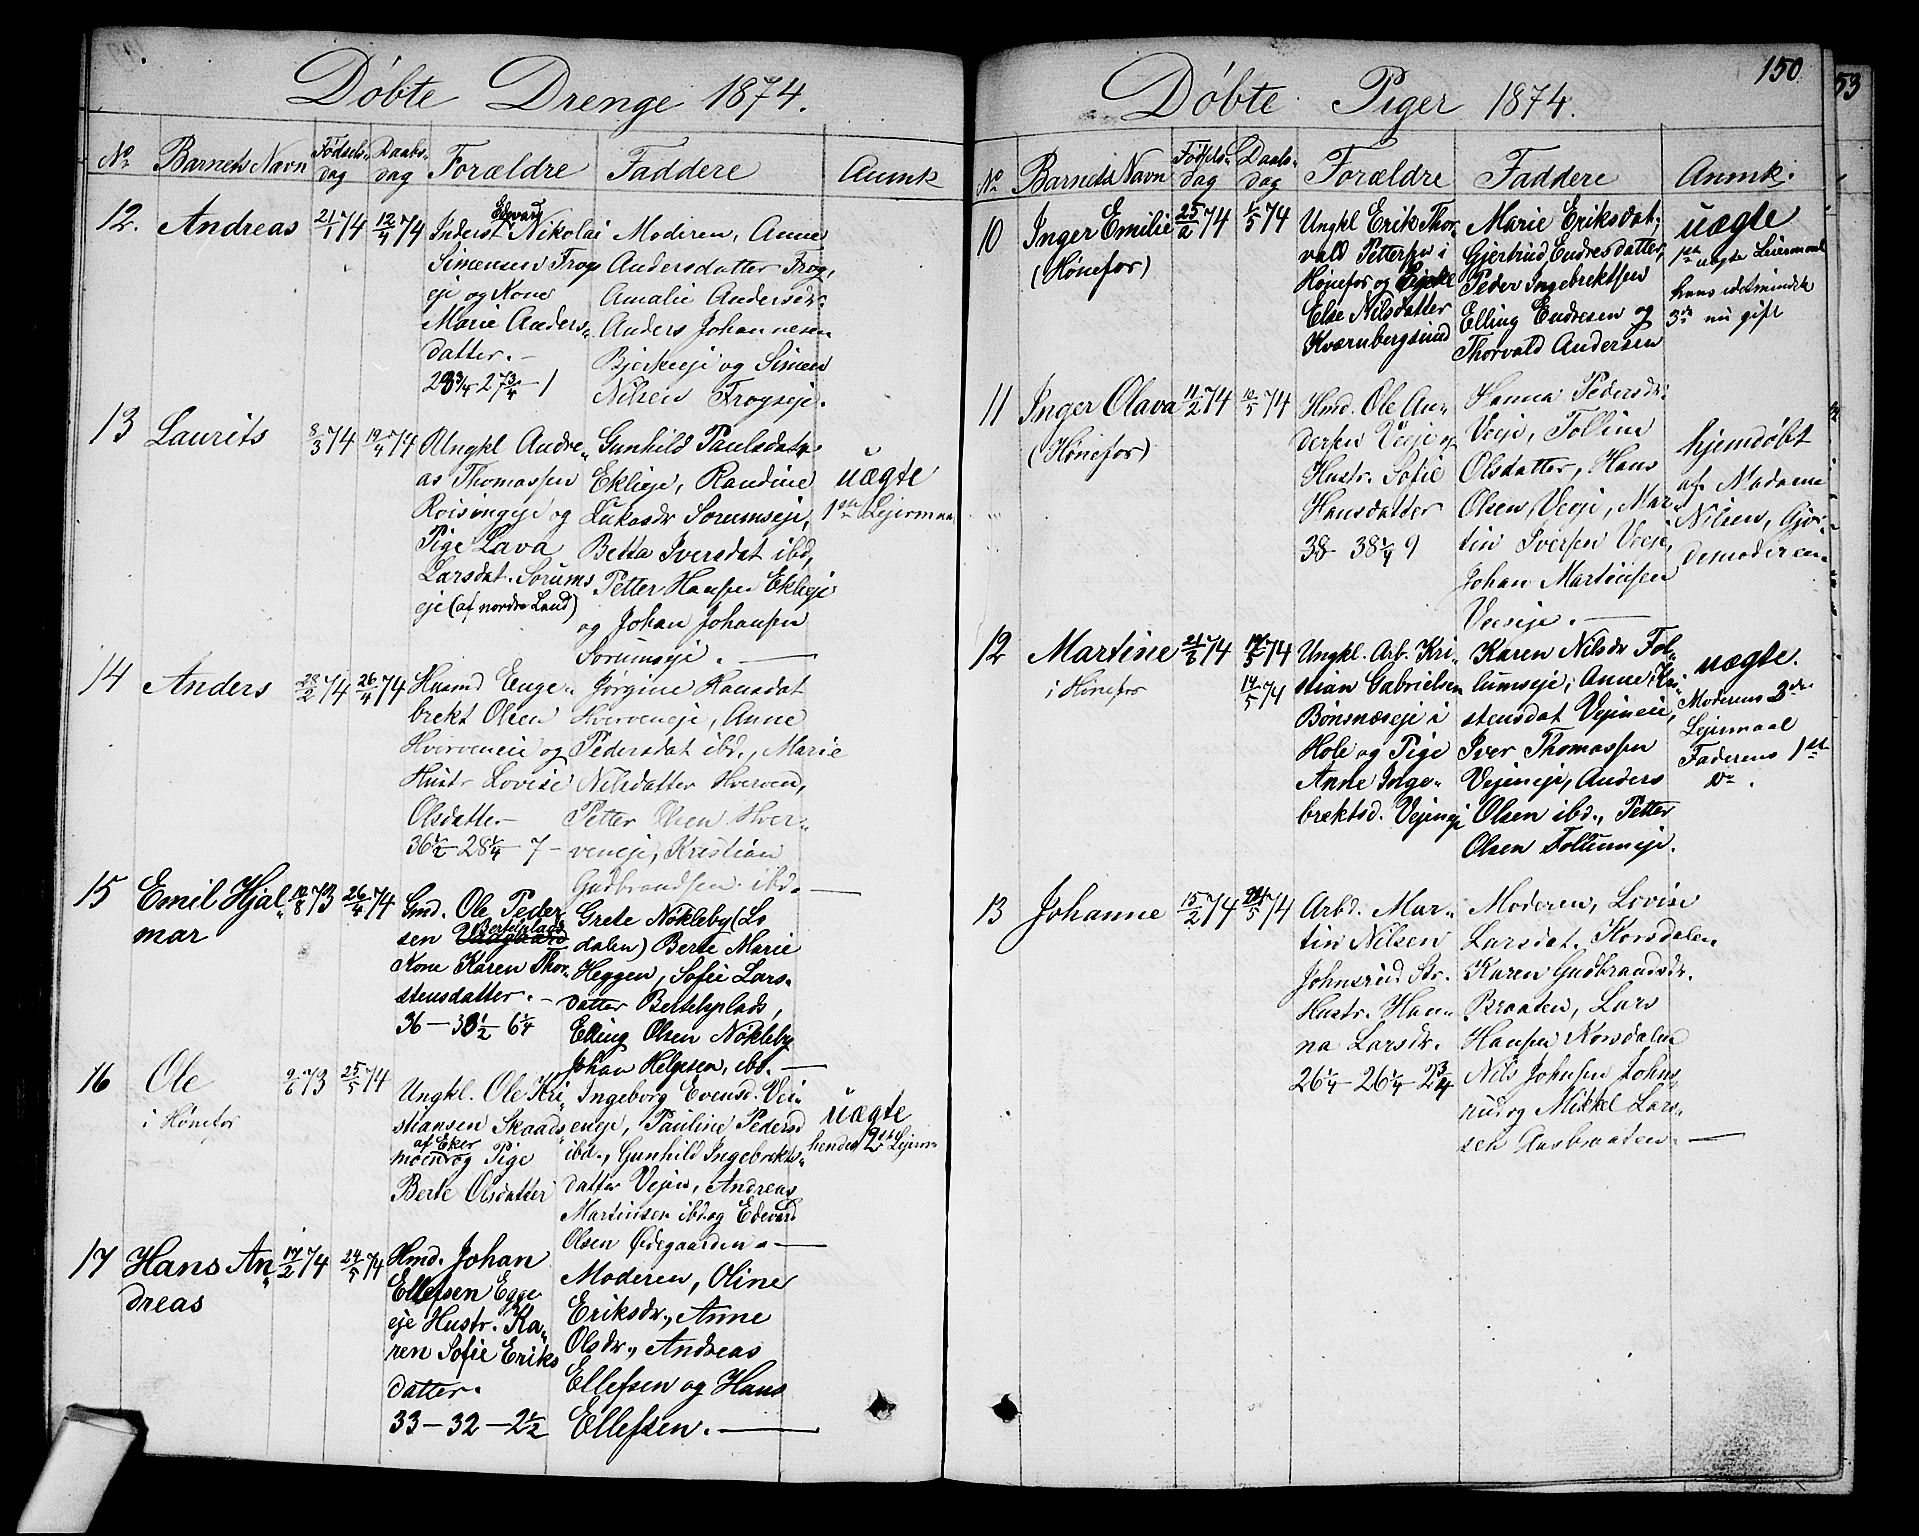 Døbte Drenge 1874.
No Barnets Navn Fødsels-dag Daabs-dag Forældre Faddere Anmk
12. Andreas 21/1 74 12/4 74
Inderst Edvart Nikolai
Simensen Frog
eje og Kone
Marie Anders-
datter.-
28 3/4 - 27 3/4 - 1
Moderen, Anne
Andersdatter Frog,
Amalie Andersdr.
Anders Johannesen
Bjerkeeje og Simen
Nilsen Frogseje.
13 Laurits 8/3 74 19/4 74
Ungkl Andre-
as Thomassen
Roisingeje og
Pige Lava
Larsdat. Sorums
eje (af nordre Land)
Gunhild Paulsdatr
Eklieje, Randine
Lukasdr Sorumseje,
Betta Iversdat ibd,
Petter Hansen Eklieje
og Johan Johansen
Sorumseje.
uægte
1ste Lejermaal
14 Anders 28/2 74 26/4 74
Husmd Enge-
brekt Olsen
Hverveneie og
Hustr Lovise
Olsdatter-
36 1/2 - 28 1/4 - 7-
Jørgine Hansdat
Hverveneje, Anne
Pedersdat ibd., Marie
Nilsdatter Hverven,
Petter Olsen Hver-
veneje, Kristian
Gudbrandsen ibd.
15 Emil Hjal-
mar 12/8 73 26/4 74
Gmd. Ole Peder
sen Bertelplads
Kone Karen Thor-
stensdatter.-
36 - 38 1/2 6 1/4
Grete Nökleby (Lo
dalen) Berte Marie
Heggen, Sofie Lars-
datter Bertelsplads,
Elling Olsen Nökleby
Johan Helgesen, ibd.
16 Ole
i Hønefos 9/6 73 25/5 74
Ungkl. Ole Kri-
stiansen Skaads
af Eker
moen og Pige
Berte Olsdatter
Ingeborg Evensd. Vei-
eneje, Pauline Pedersd
ibd., Gunhild Ingebrekts-
datter Vejen, Andreas
Martinsen ibd. og Edevard
Olsen Ødegaarden.
uægte
hendes 2det Lejerm
17 Hans An-
dreas 17/2 74 24/5 74
Hmd. Johan
Ellefsen Egge-
eje Hustr. Ka-
ren Sofie Eriks
datter.
33 - 32 - 2 1/2
Moderen, Oline
Eriksdr., Anne
Olsdr., Andreas
Ellefsen og Hans
Ellefsen.
150
53
Døbte Piger 1874.
No Barnets Navn Fødsels-dag Daabs-dag Forældre Faddere Anmk.
10 Inger Emilie
(Hønefos) 25/2 74 1/5 74
Ungkl Erik Thor-
vald Pettersen i
Højnefos og Pige
Else Nilsdatter
Kværnbergsund
Marie Eriksdat,
Gjertrud Endresdatter,
Peder Ingebrektsen
Elling Endresen og
Thorvald Andersen
uægte
1ste uægte Leiermaal
hans idetmindste
3die nu gift
11 Inger Olava
(Hønefos) 11/2 74 10/5 74
Hmd. Ole An-
dersen Veeje og
Hustr. Sofie
Hansdatter
38 - 38 1/4 9
Hanna Pedersdr.
Veeje, Folline
Olsdatter, Hans
Olsen Veeje, Mar-
tin Iversen Veeje,
Johan Martinsen
Veeseje.
hjemdøbt
af Madame
Nilsen, Gjor-
demoderen
12 Martine
i Hønefos 21/3 74 14/5 74
14/5 74
Ungkl. Arb. Kri-
stian Gabrielsen
Bönsnæseje i
Hole og Pige
Anne Inge-
brektsd. Vejeneje
Karen Nilsdr Fol-
lumseje, Anne Kri-
stensdat Vejeneie,
Iver Thomassen
Vejeneje, Anders
Olsen ibd., Petter
Olsen Follumseje.
uægte.
Moderens 3die
Lejermaal
Faderens 1ste
Do.
13 Johanne 15/2 74 24/5 74
Arbd. Mar-
tin Nilsen
Johnsrud Br.
Hustr. Han-
na Larsdr.
26 1/4 - 26 1/4 - 2 3/4
Moderen, Lovise
Larsdat. Korsdalen
Karen Gudbrandsdr.
Braaten, Lars
Hansen Korsdalen
Nils Johnsen Johns-
rud og Mikkel Lars-
sen Aasbraaten.